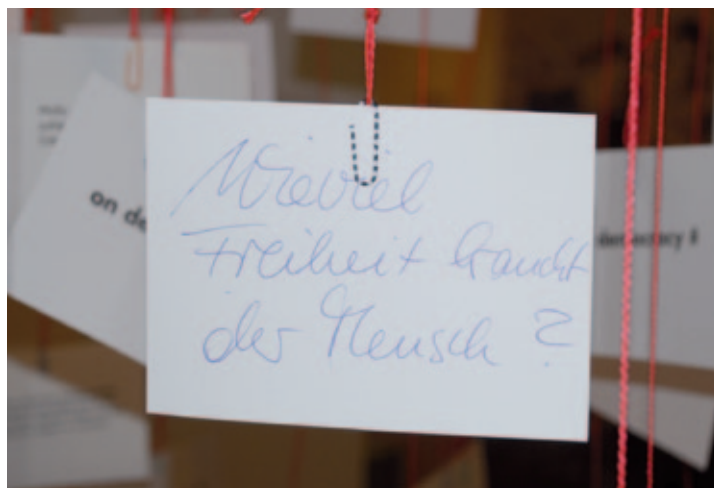 Wieviel
Freiheit braucht
der Mensch?
on de
democracy &